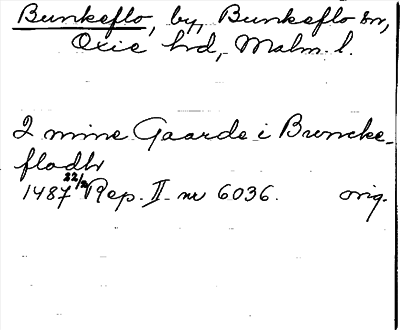 Bunkeflo, by, Bunkeflo sn,
Oxie hd, Malm. l.
2 mine Gaarde i Bruncke-
flodh
1487 22/2 Rep. II nr 6036. orig.